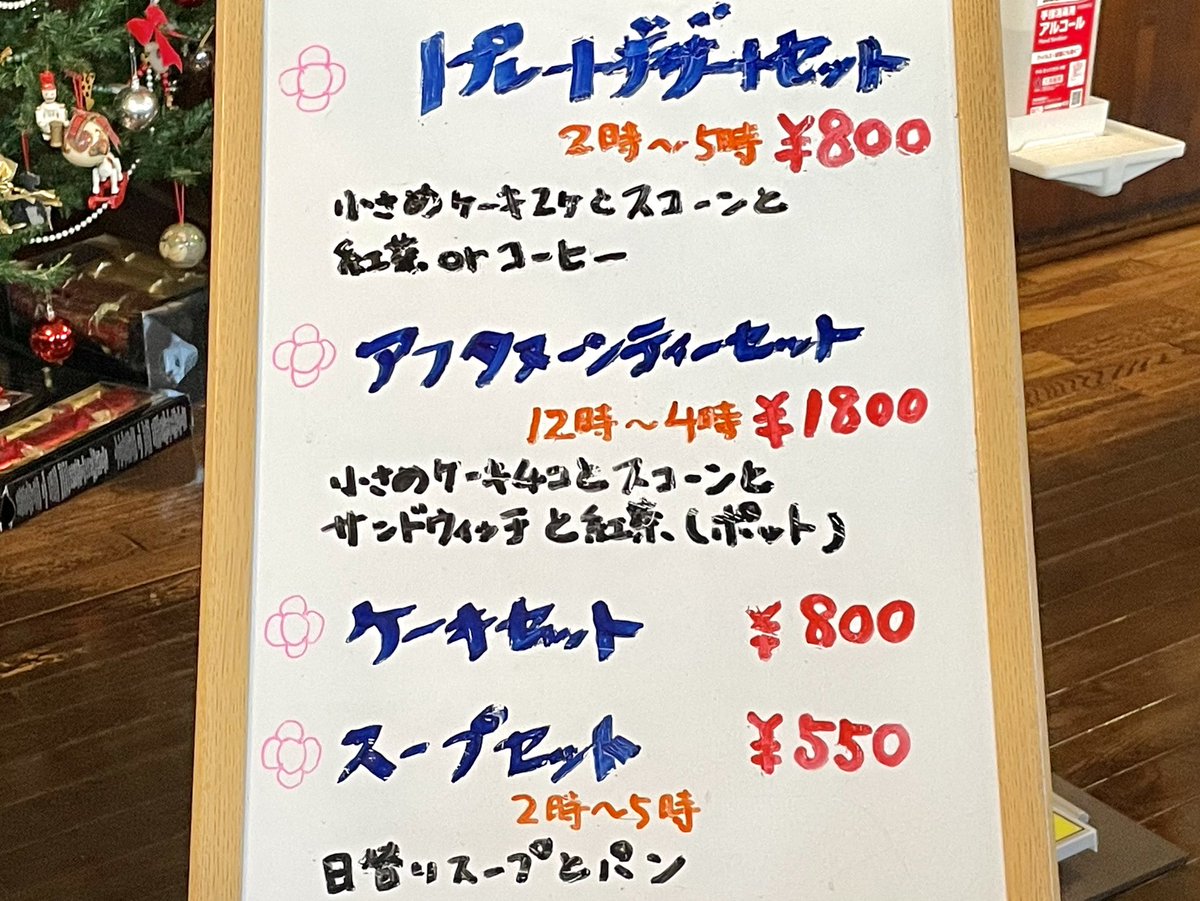 1プレートデザートセット
2時〜5時 ¥800
小さめケーキ2ケとスコーンと
紅茶orコーヒー
アフタヌーンティーセット
12時〜4時 ¥1800
小さめケーキ4コとスコーンと
サンドウィッチと紅茶(ポット)
ケーキセット ¥800
スープセット ¥550
2時〜5時
日替りスープとパン
手指消毒用
アルコール